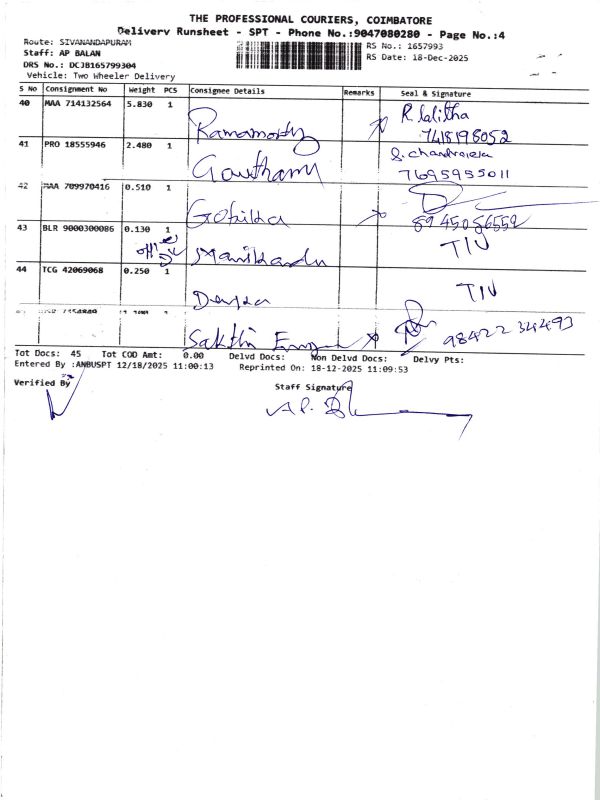 THE PROFESSIONAL COURIERS, COIMBATORE
Delivery Runsheet - SPT - Phone No.:9047080280 - Page No.:4
Route: SIVANANDAPURAM
RS No.: 1657993
Staff: AP BALAN
RS Date: 18-Dec-2025
DRS No.: DCJB165799304
Vehicle: Two Wheeler Delivery
S No Consignment No Weight PCS Consignee Details Remarks Seal & Signature
40 MAA 714132564 5.830 1 R. Lalitha
Ramamoorthy 7418198052
41 PRO 18555946 2.480 1
Gowthamy 7695955011
42 MAA 709970416 0.510 1
Gobika 8945056552
43 BLR 9000300086 0.130 1 TIN
Manikandan
44 TCG 42069068 0.250 1 TIN
45
Sakthi 98422 34493
Tot Docs: 45 Tot COD Amt: 0.00 Delvd Docs: Non Delvd Docs: Delvy Pts:
Entered By :ANBUSPT 12/18/2025 11:00:13 Reprinted On: 18-12-2025 11:09:53
Verified By Staff Signature